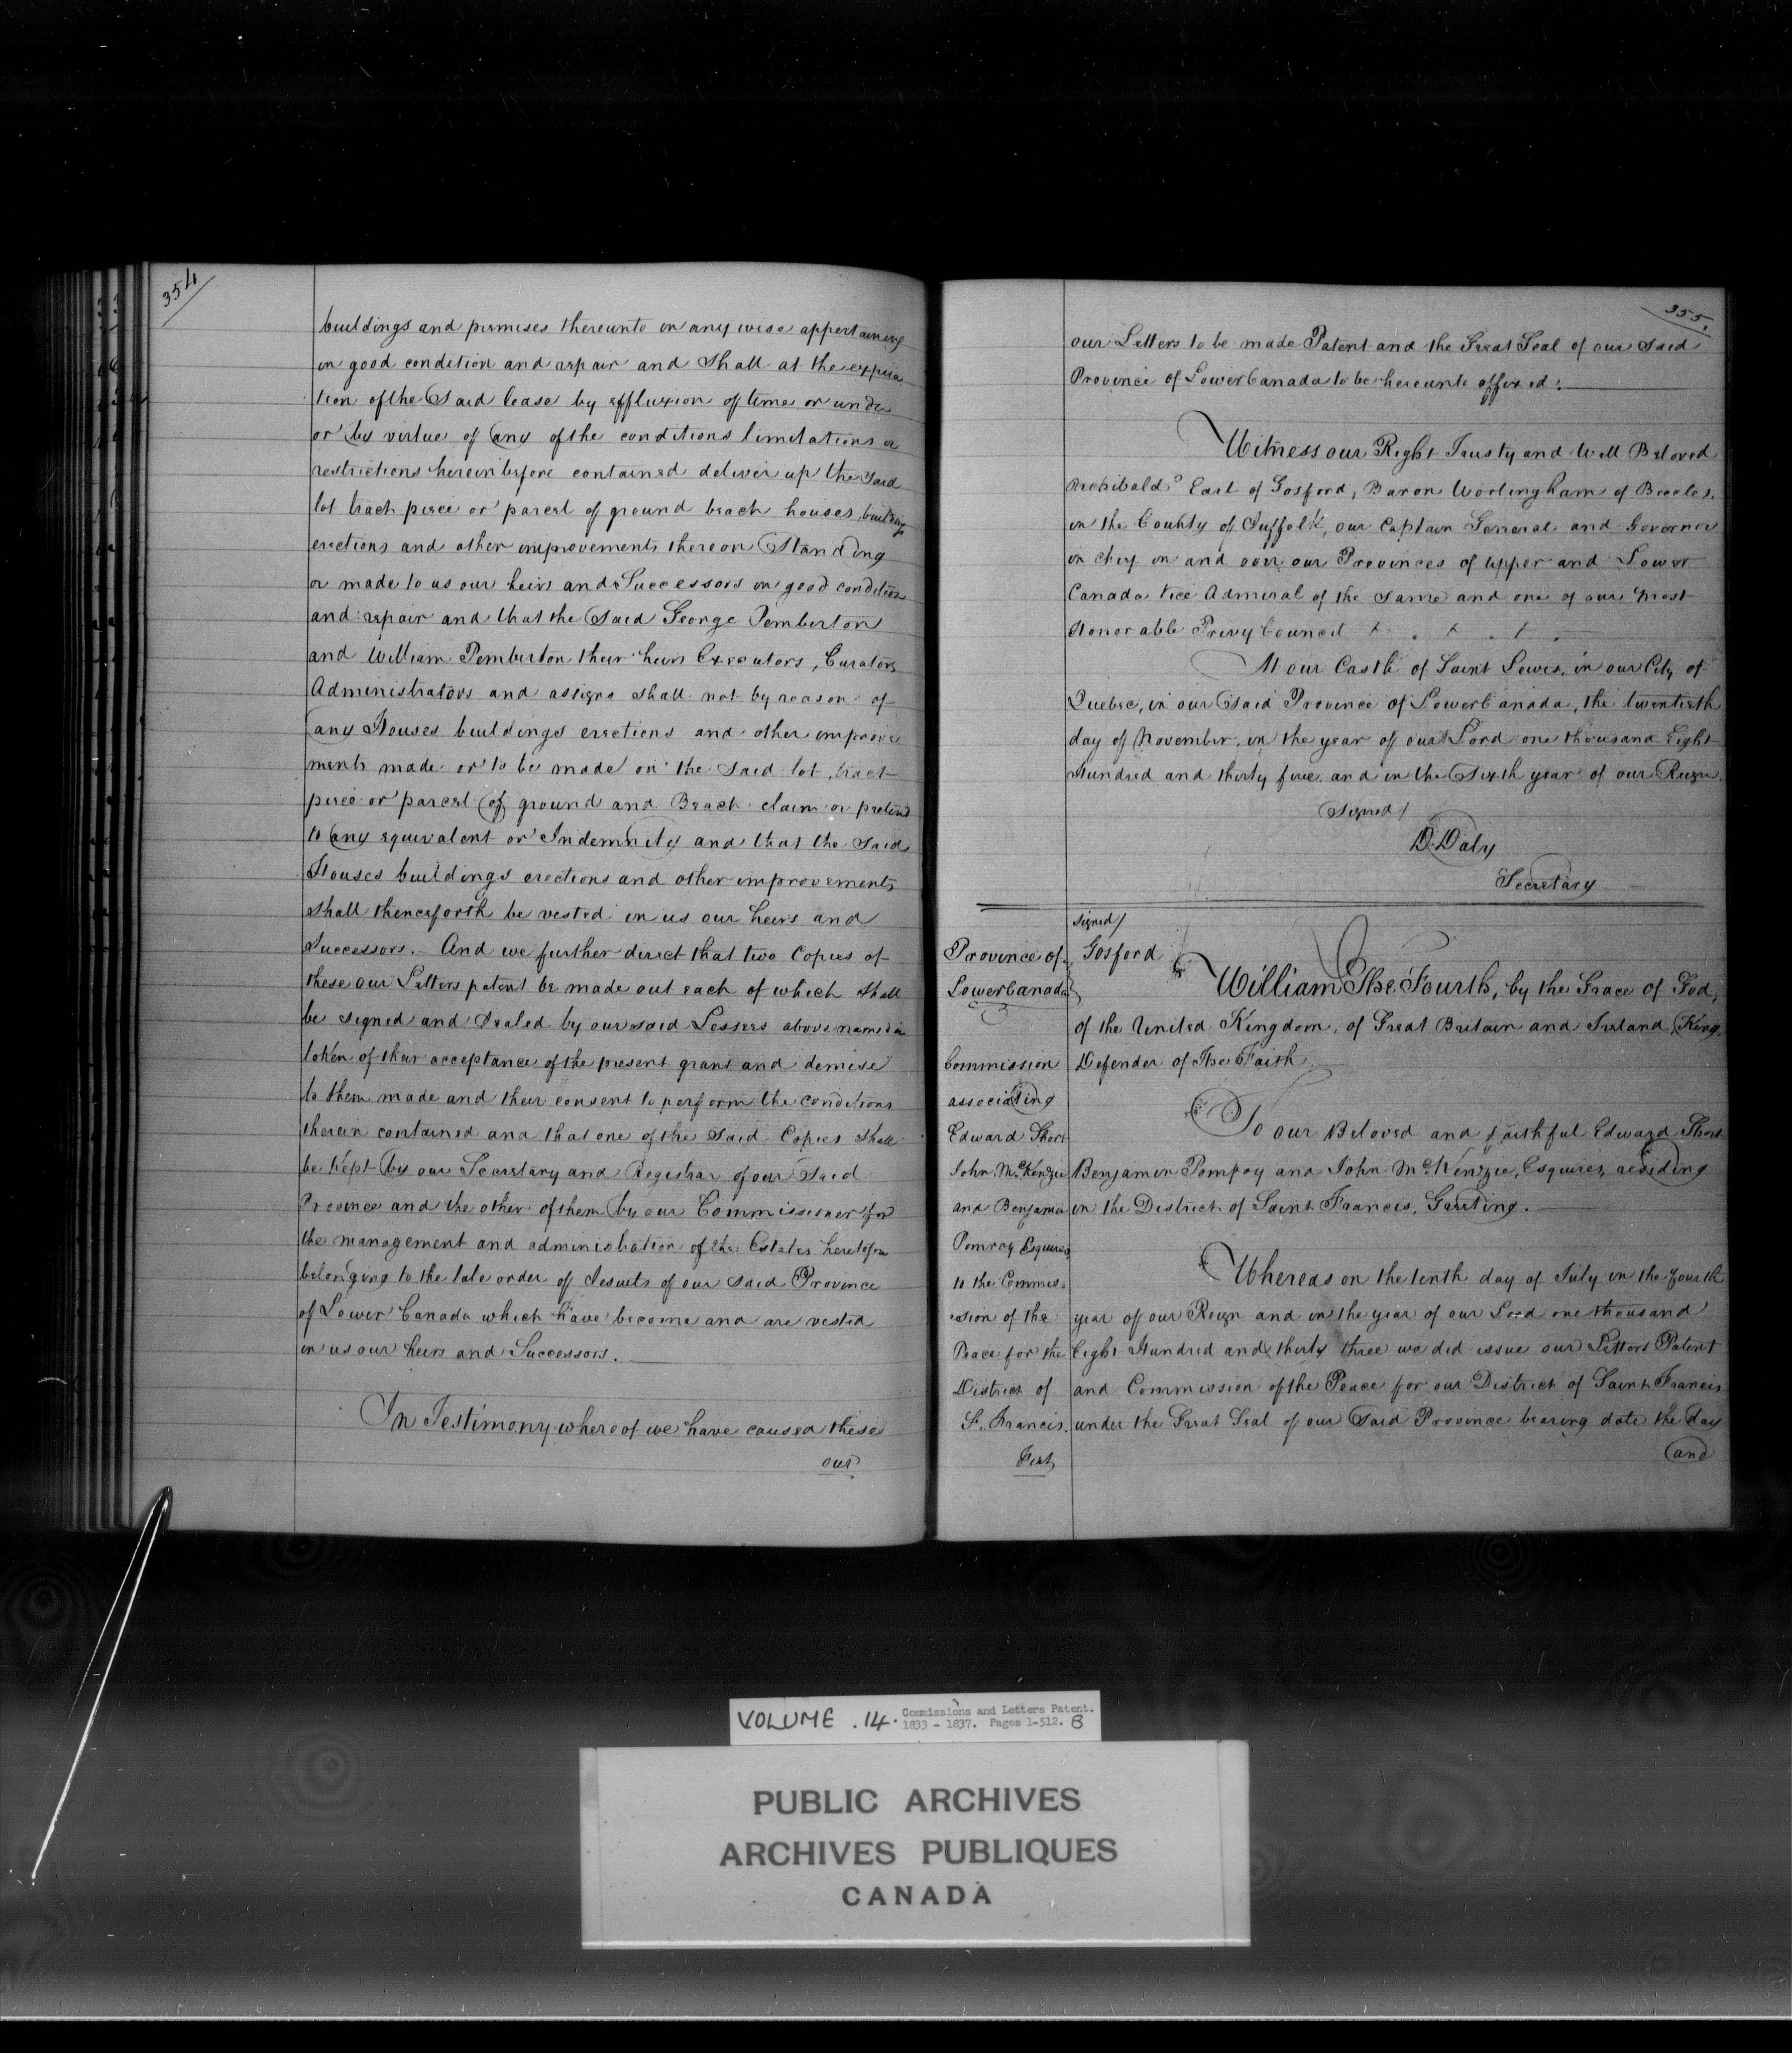 354
buildings and premises thereunto in any wise appertaining
in good condition and repair and Shall at the expira
tion of the Said lease by effluxion of time or under
or by virtue of any of the conditions limitations or
restrictions hereinbefore contained deliver up the said
lot tract piece or parcel of ground beach houses, buildings
erections and other improvements thereon Standing
or made to us our heirs and Successors in good condition
and repair and that the Said George Pemberton
and William Pemberton their heirs Executors, Curators
Administrators and assigns shall not by reason of
any Houses buildings erections and other improve
ments made or to be made on the said lot, tract
piece or parcel of ground and Beach claim or pretend
to any equivalent or Indemnity and that the Said
Houses buildings erections and other improvements
shall thenceforth be vested in us our heirs and
Successors. And we further direct that two Copies of
these our Letters patent be made out each of which shall
be signed and Sealed by our said Lessees above named in
token of their acceptance of the present grant and demise
to them made and their consent to perform the conditions
therein contained and that one of the said Copies shall
be kept by our Secretary and Registrar of our Said
Province and the other of them by our Commissioner for
the management and administration of the Estates heretofore
belonging to the late order of Jesuits of our said Province
of Lower Canada which have become and are vested
in us our heirs and Successors.
In Testimony whereof we have caused these
our
355.
our Letters to be made Patent and the Great Seal of our Said
Province of Lower Canada to be hereunto affixed.
Witness our Right Trusty and Well Beloved
Archibald Earl of Gosford, Baron Worlingham of Beccles,
in the County of Suffolk, our Captain General and Governor
in chief in and over our Provinces of Upper and Lower
Canada Vice Admiral of the Same and one of our Most
Honorable Privy Council + . + . + .
At our Castle of Saint Lewis, in our City of
Quebec, in our Said Province of Lower Canada, the twentieth
day of November, in the year of our Lord one thousand Eight
Hundred and thirty five and in the Sixth year of our Reign.
Signed/
D. Daly
Secretary
signed/
Gosford
Province of
Lower Canada
William The Fourth, by the Grace of God,
of the United Kingdom, of Great Britain and Ireland, King,
Defender of The Faith
Commission
associating
Edward Short
John McKenzie
and Benjamin
Pomroy Esquires
to the Commis=
=sion of the
Peace for the
District of
St. Francis.
To our Beloved and faithful Edward Short
Benjamin Pomroy and John McKenzie, Esquires, residing
in the District of Saint Francis, Greeting.
Whereas on the tenth day of July in the fourth
year of our Reign and in the year of our Lord one thousand
Eight Hundred and thirty three we did issue our Letters Patent
and Commission of the Peace for our District of Saint Francis
under the Great Seal of our Said Province bearing date the day
and
VOLUME . 14. Commissions and Letters Patent.
1833 - 1837. Pages 1-512. B
PUBLIC ARCHIVES
ARCHIVES PUBLIQUES
CANADA